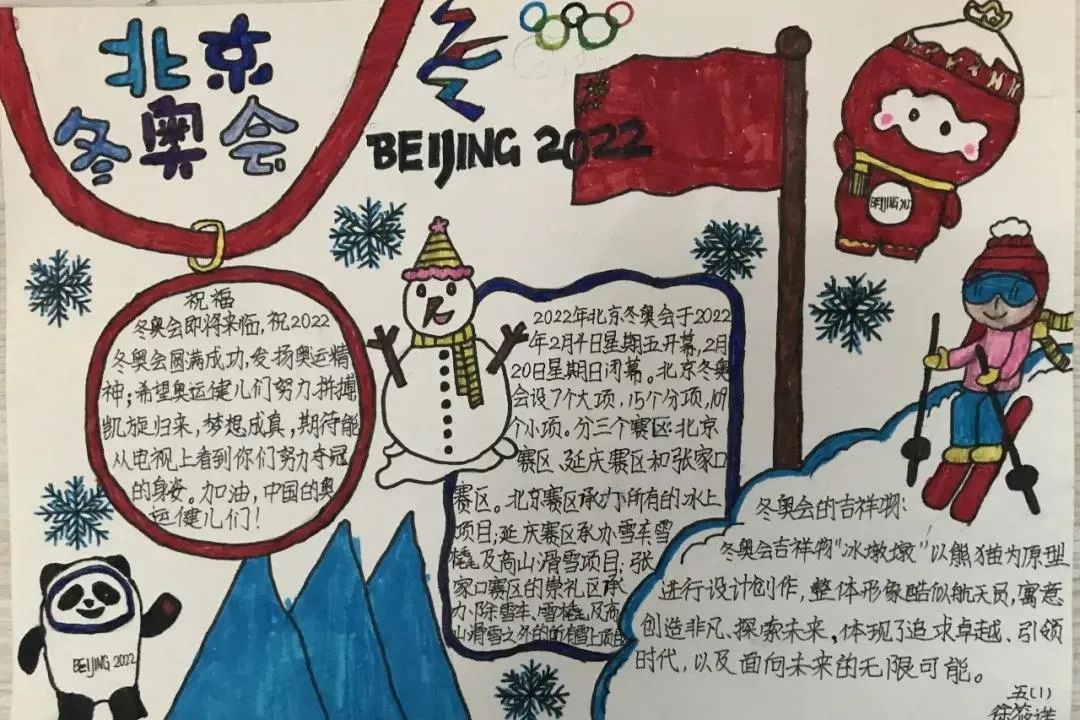 北京
冬奥会
BEIJING 2022
BEIJING 202
祝福
冬奥会即将来临,祝2022
冬奥会圆满成功,发扬奥运精
神;希望奥运健儿们努力拼搏
凯旋归来,梦想成真,期待能
从电视上看到你们努力夺冠
的身姿。加油,中国的奥
运健儿们!
2022年北京冬奥会于2022
年2月4日星期五开幕,2月
20日星期日闭幕。北京冬奥
会设7个大项,15个分项,109
个小项。分三个赛区:北京
赛区、延庆赛区和张家口
赛区。北京赛区承办所有的冰上
项目;延庆赛区承办雪车雪
橇及高山滑雪项目;张
家口赛区的崇礼区承
办除雪车、雪橇及高
山滑雪之外的所有雪上项目
冬奥会的吉祥物:
冬奥会吉祥物“冰墩墩”以熊猫为原型
进行设计创作,整体形象酷似航天员,寓意
创造非凡、探索未来,体现了追求卓越、引领
时代,以及面向未来的无限可能。
五(1)
BEIJING 2022